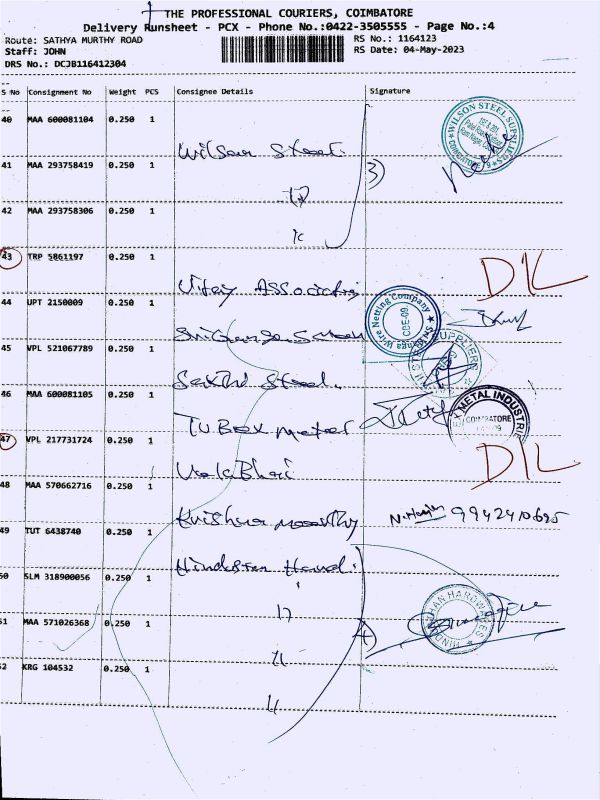 THE PROFESSIONAL COURIERS, COIMBATORE
Delivery Runsheet - PCX - Phone No.:0422-3505555 - Page No.:4
Route: SATHYA MURTHY ROAD
RS No.: 1164123
Staff: JOHN
RS Date: 04-May-2023
DRS No.: DCJB116412304
S No Consignment No Weight PCS Consignee Details Signature
40 MAA 600081104 0.250 1
Wilson Steel
WILSON STEEL SUPPLIERS
COIMBATORE
41 MAA 293758419 0.250 1
3)
42 MAA 293758306 0.250 1
43 TRP 5861197 0.250 1
Vijay Associates
DIL
44 UPT 2150009 0.250 1
Wire Netting Company
CBE-09
45 VPL 521067789 0.250 1
Sakthi Steel
SUPPLIERS
46 MAA 600081105 0.250 1
Tubex metal
METAL INDUSTRIES
COIMBATORE
47 VPL 217731724 0.250 1
DIL
48 MAA 570662716 0.250 1
Krishna moorthy
9942410695
49 TUT 6438740 0.250 1
Hindustan Hard
50 SLM 318900056 0.250 1
HARDWARES
51 MAA 571026368 0.250 1
4)
52 KRG 104532 0.250 1